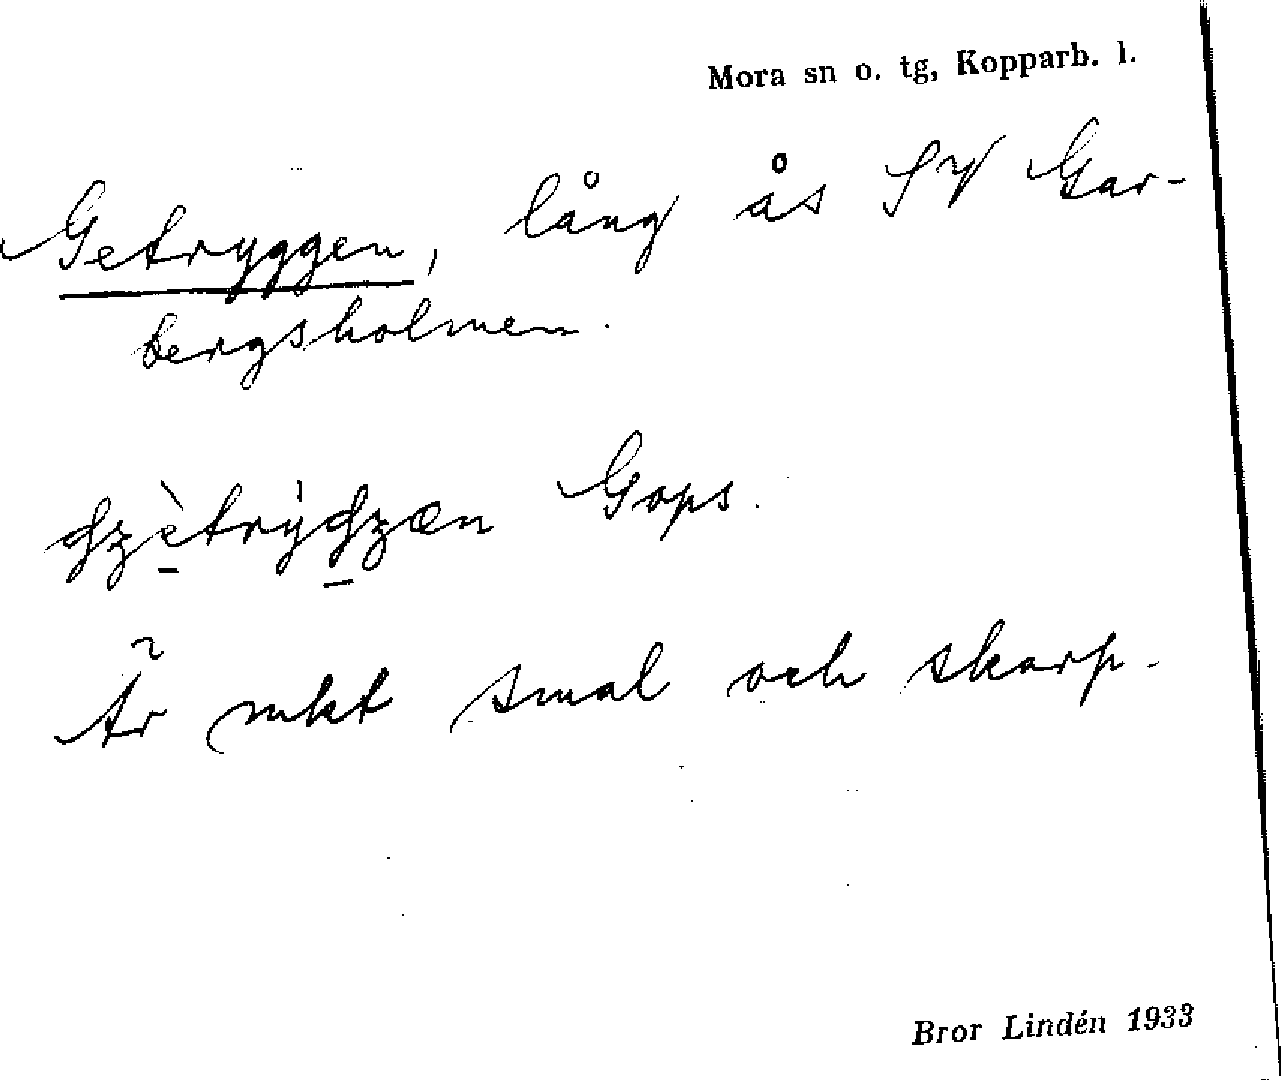 Mora sn o. tg, Kopparb. l.
Getryggen, lång ås SV Gar-
bergsholmen.
Gops.
Är mkt smal och skarp.
Bror Lindén 1933